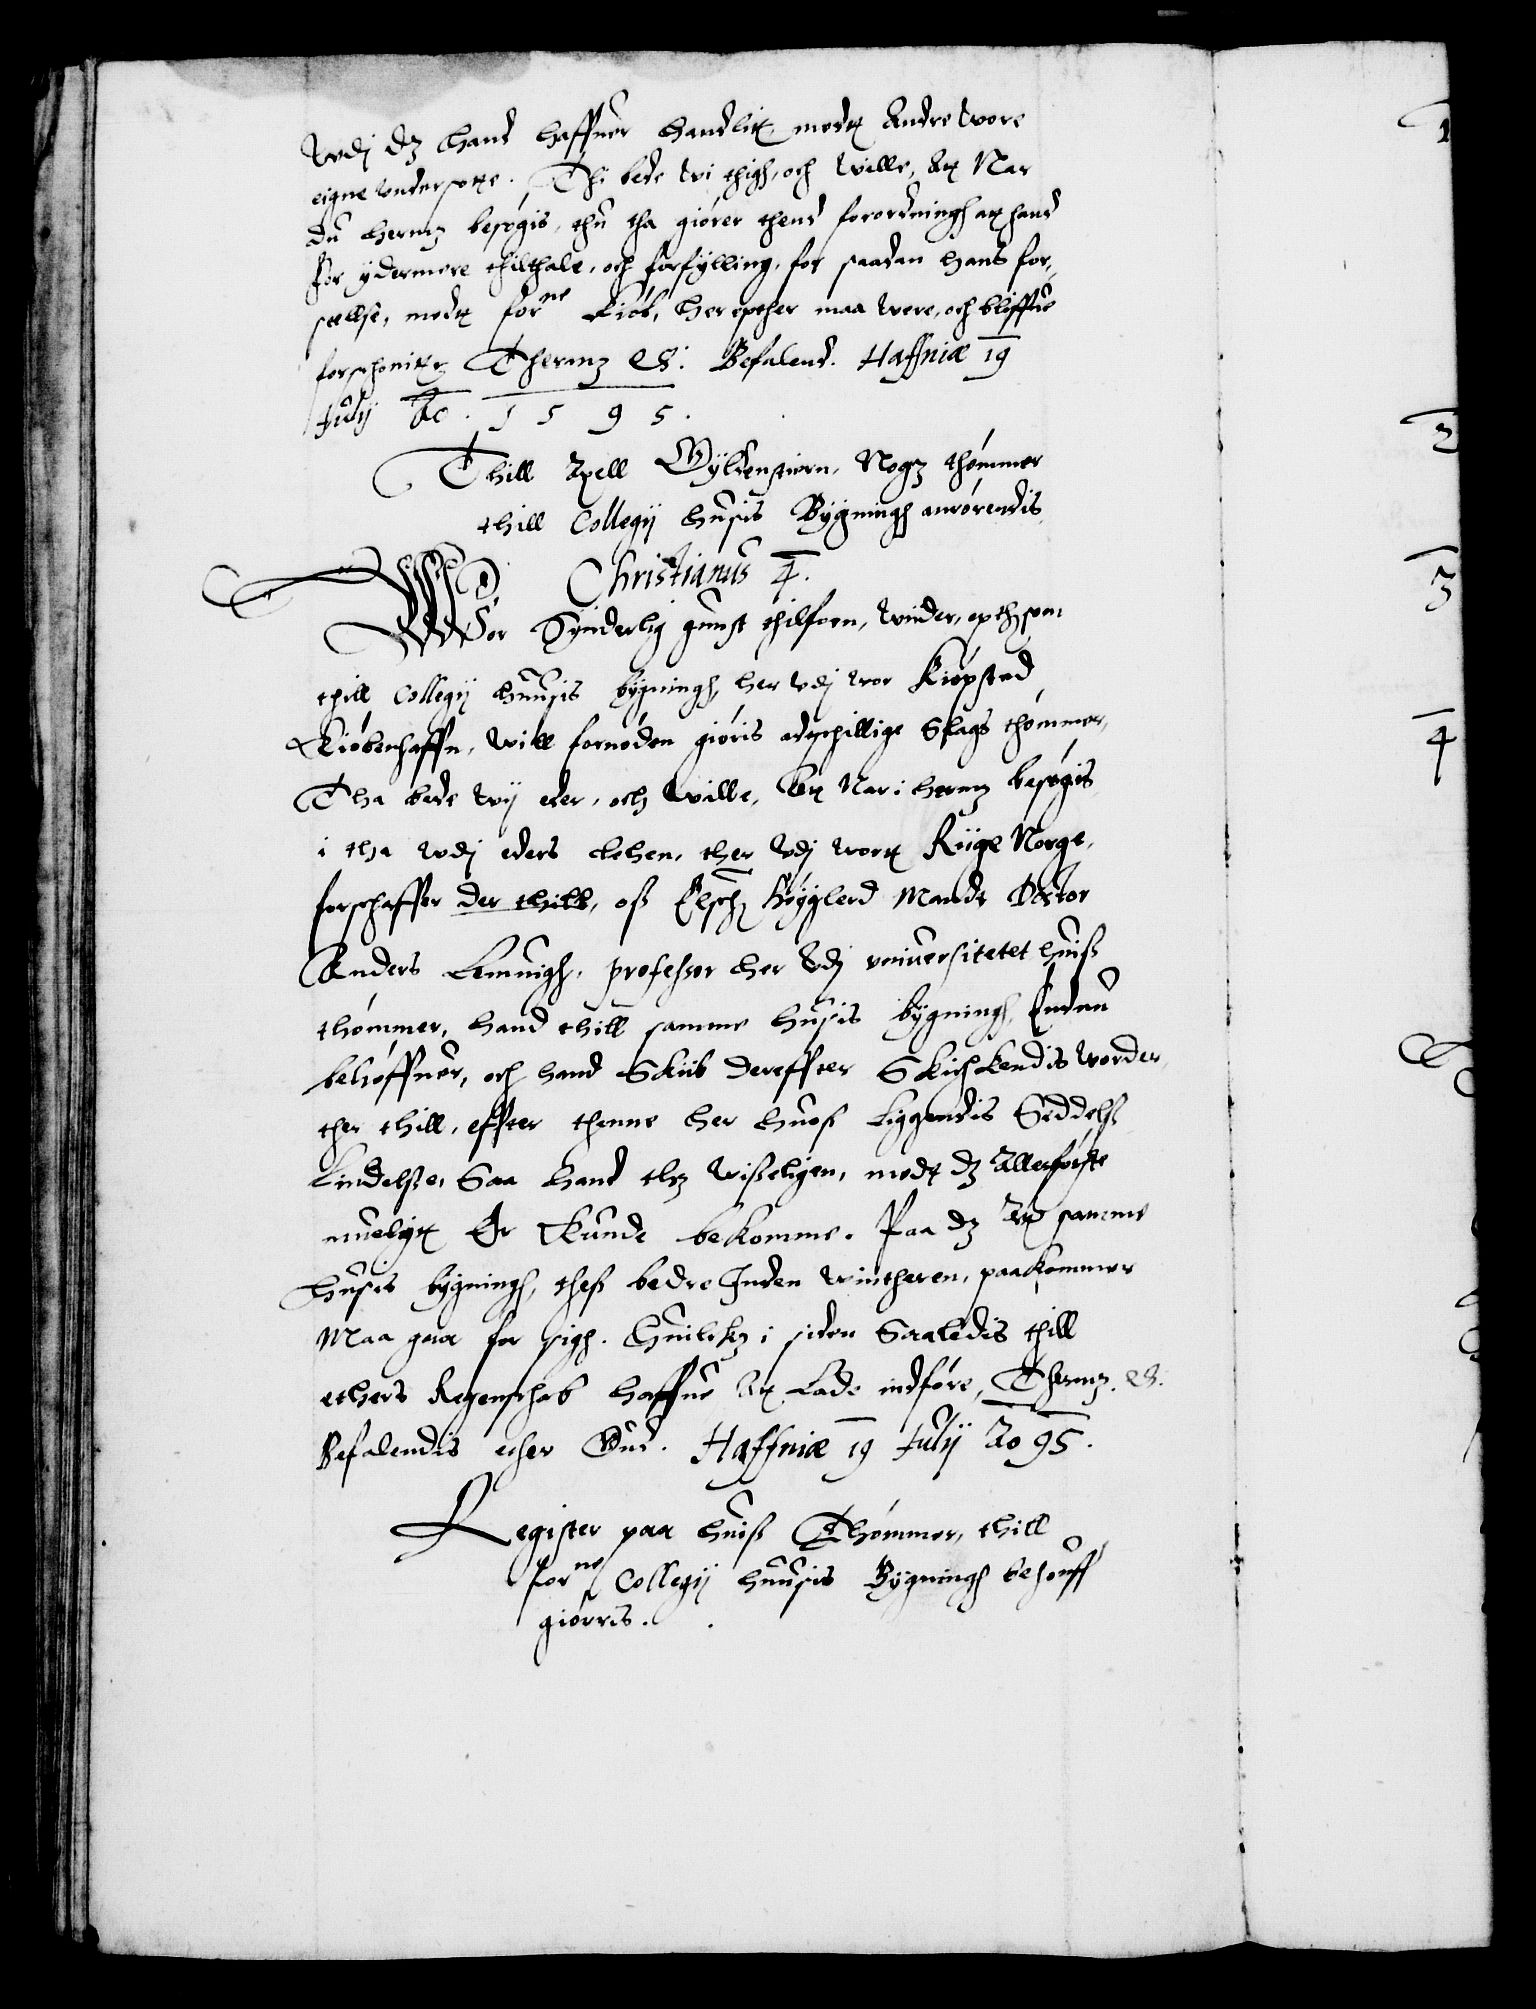 Wdj dz hand haffuer handlit modt Andre wore
eigne undersotte. Thi bede wi thigh, och wille, At Nar
du hermz besøgis, thu tha giører thend forordningh at hand
for ydermere thilthale, och forfylling, for saadan hans for,
seellse, modt forne Kiøb, her epther maa were, och bliffue
forschonitt Thermz &. Befalend. Haffniæ 19
July Ao. 1595.
Thill Axell Gyldenstiern, Nogz thømmer
thill Collegij husis Bygningh anrørendis
Christianus 4.
Wor Synderlig gunst thilforn, Winder, epthjsom
thill Collegij huusis bygningh, her udj wor Kiøpsted
Kiøbenhaffn, will fornøden giøris adschillige Slags thømmer,
Tha bede wij eder, och wille, At Nar i hermz besøgis
i tha wdj eders Lehen, ther Udj wort Riige Norge,
forschaffer der thill, oss Elsch Høyglerd Mand Doctor
Anders Lemuigh, professor her Udj vniuersitetet huiss
thømmer, hand thill samme husis bygningh, Endnu
behøffuer, och hand Skiib dereffter Skickendis worder
ther thill, effter thenne her huoss Liggendis Seddelss
Liudelsse, Saa hand thz wisseligen, modt dz Allerførste
mueligt Er Kunde bekomme. Paa dz At samme
husis bygningh, thess bedre Inden wintheren, paakommer
Maa gaa for sigh. Huilckz i siden Saaledis thill
ethers Regenschab haffue At Lade indføre, Thermz. &.
Befalendis ether Gud. Haffniæ 19 July Ao 95.
Register paa huiss Thømmer, thill
forne Collegij huusis Bygningh behouff
giørris.
1
2
3
4